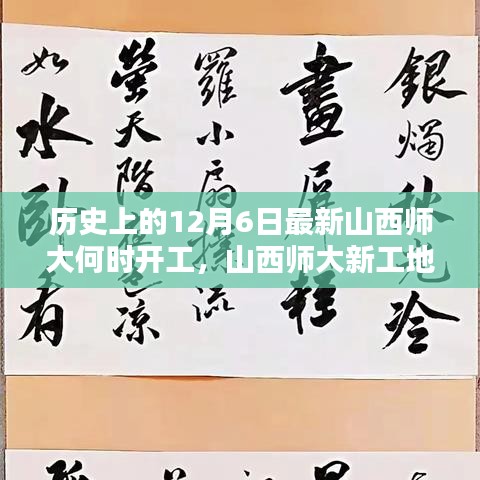 銀燭秋光冷
畫屏輕
羅小扇撲流
螢天階涼
如水臥看
历史上的12月6日最新山西师
大何时开工，山西师大新工地